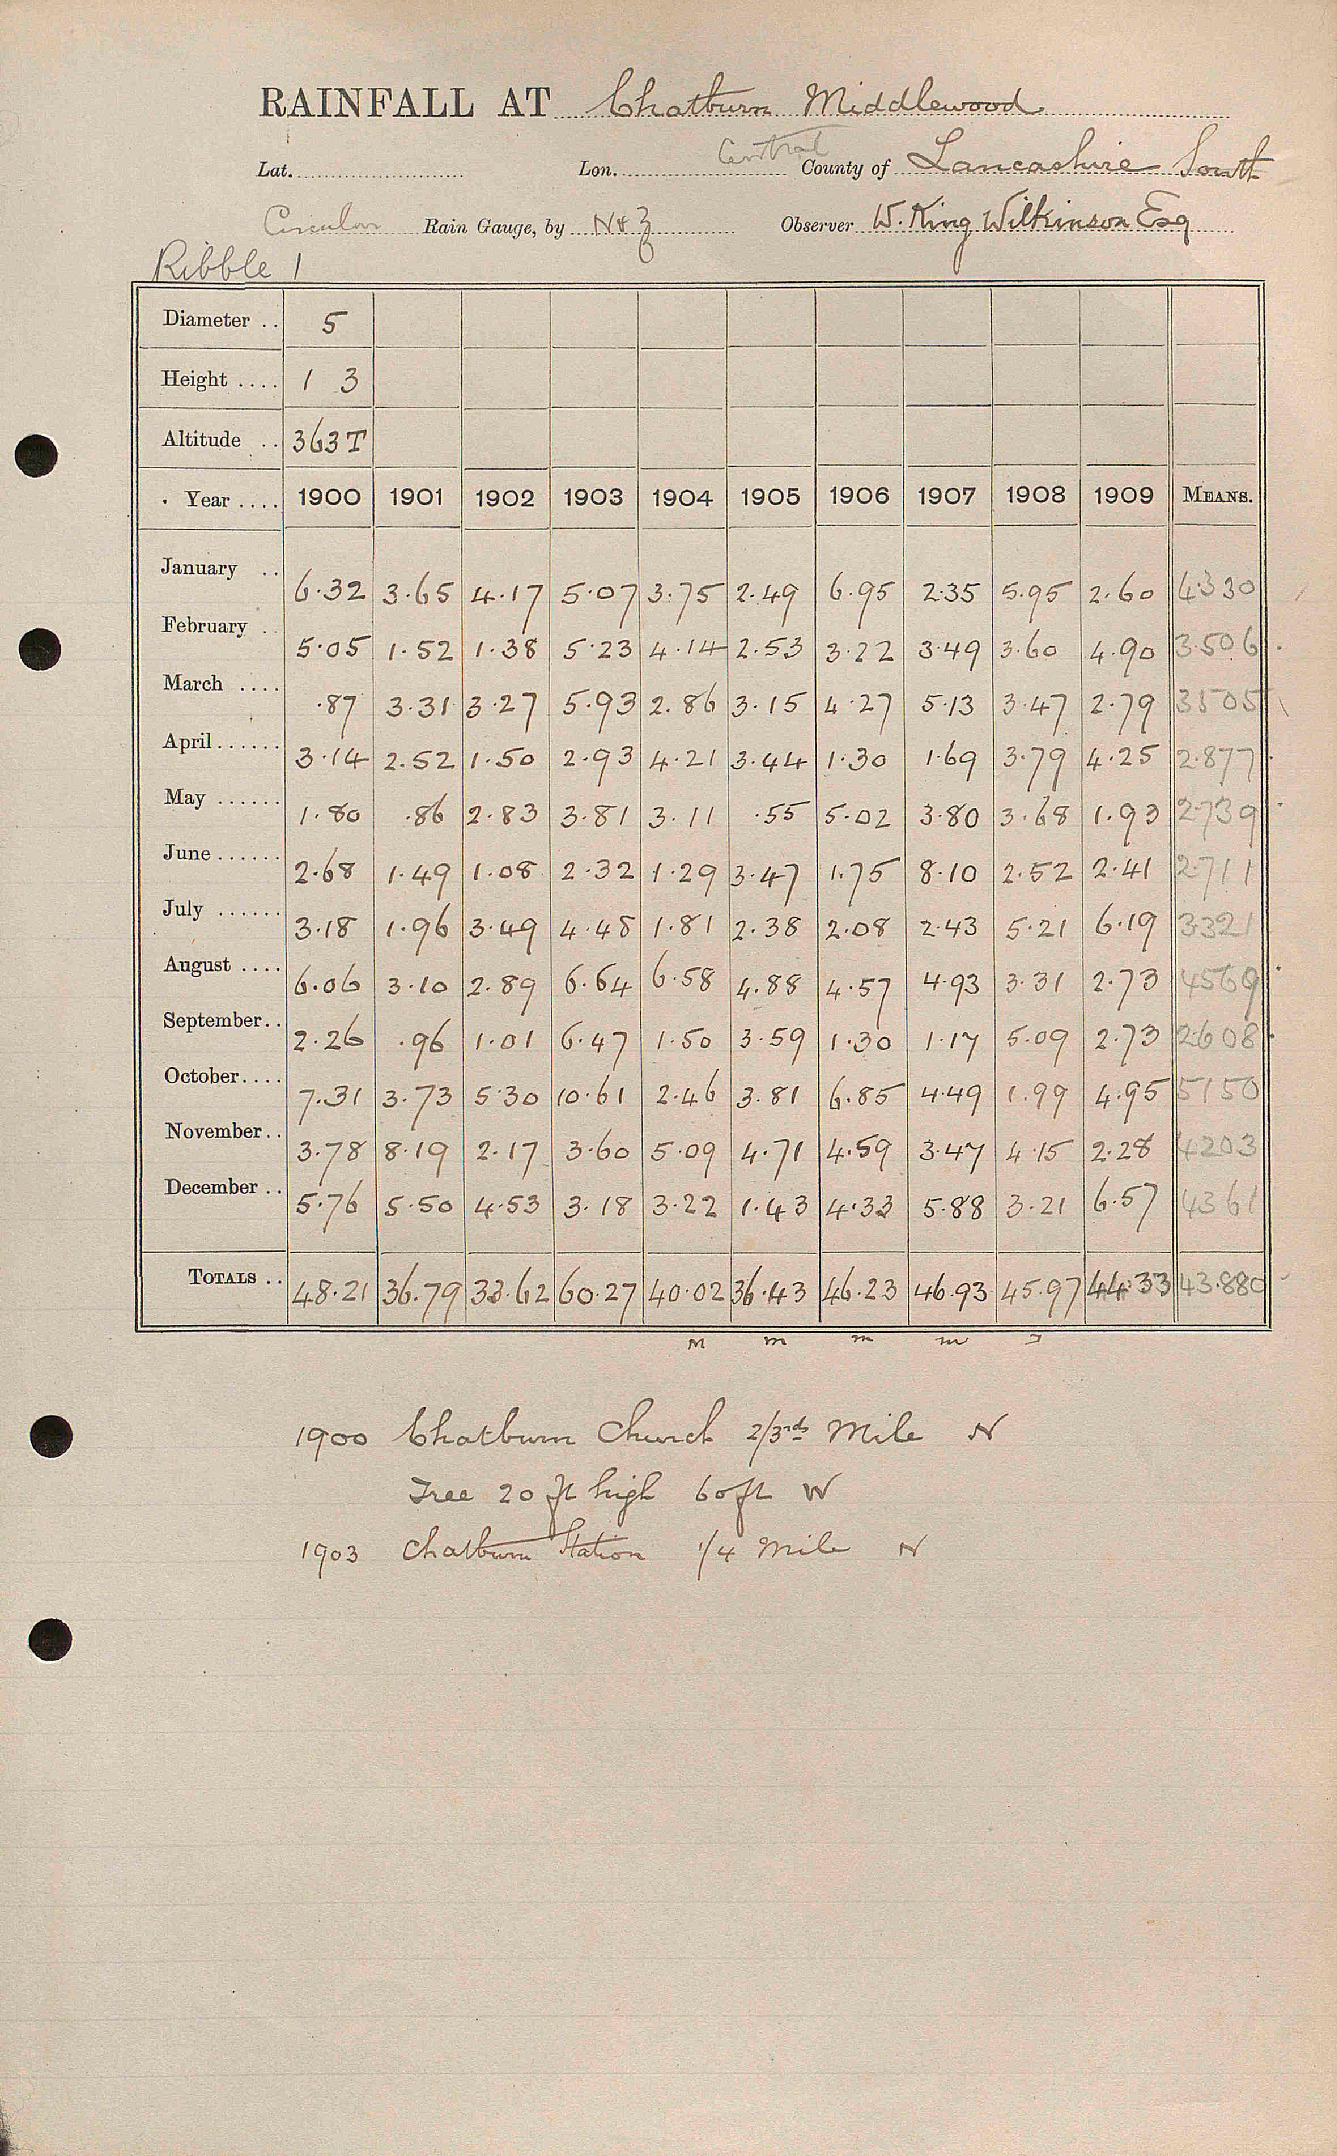 RAINFALL AT Chatburn Middlewood
Central
Lat. Lon. County of Lancashire South
Circular Rain Gauge, by N & Z Observer W. King Wilkinson Esq
Ribble 1
Diameter .. 5
Height .... 1 3
Altitude .. 363 T
Year .... 1900 1901 1902 1903 1904 1905 1906 1907 1908 1909 MEANS.
January .. 6.32 3.65 4.17 5.07 3.75 2.49 6.95 2.35 5.95 2.60 4.330
February .. 5.05 1.52 1.38 5.23 4.14 2.53 3.22 3.49 3.60 4.90 3.506
March .... .87 3.31 3.27 5.93 2.86 3.15 4.27 5.13 3.47 2.79 3505
April ...... 3.14 2.52 1.50 2.93 4.21 3.44 1.30 1.69 3.79 4.25 2.877
May ...... 1.80 .86 2.83 3.81 3.11 .55 5.02 3.80 3.68 1.93 2.739
June ...... 2.68 1.49 1.08 2.32 1.29 3.47 1.75 8.10 2.52 2.41 2711
July ...... 3.18 1.96 3.49 4.48 1.81 2.38 2.08 2.43 5.21 6.19 3321
August .... 6.06 3.10 2.89 6.64 6.58 4.88 4.57 4.93 3.31 2.73 4569
September .. 2.26 .96 1.01 6.47 1.50 3.59 1.30 1.17 5.09 2.73 2608
October .... 7.31 3.73 5.30 10.61 2.46 3.81 6.85 4.49 1.99 4.95 5150
November .. 3.78 8.19 2.17 3.60 5.09 4.71 4.59 3.47 4.15 2.28 4203
December .. 5.76 5.50 4.53 3.18 3.22 1.43 4.33 5.88 3.21 6.57 4361
TOTALS .. 48.21 36.79 33.62 60.27 40.02 36.43 46.23 46.93 45.97 44.33 43.880
M m m m
1900 Chatburn Church 2/3rds Mile N
Tree 20 ft high 60 ft W
1903 Chatburn Station 1/4 Mile N